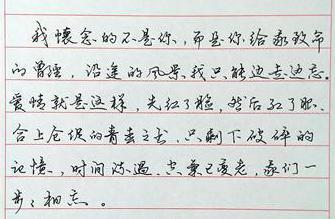 我怀念的不是你，而是你给我致命
的曾经，沿途的风景我只能边走边忘。
爱情就是这样，先红了脸，然后红了眼。
合上仓促的青春之书，只剩下破碎的
记忆，时间流过，未央已度老，我们一
步步相忘。